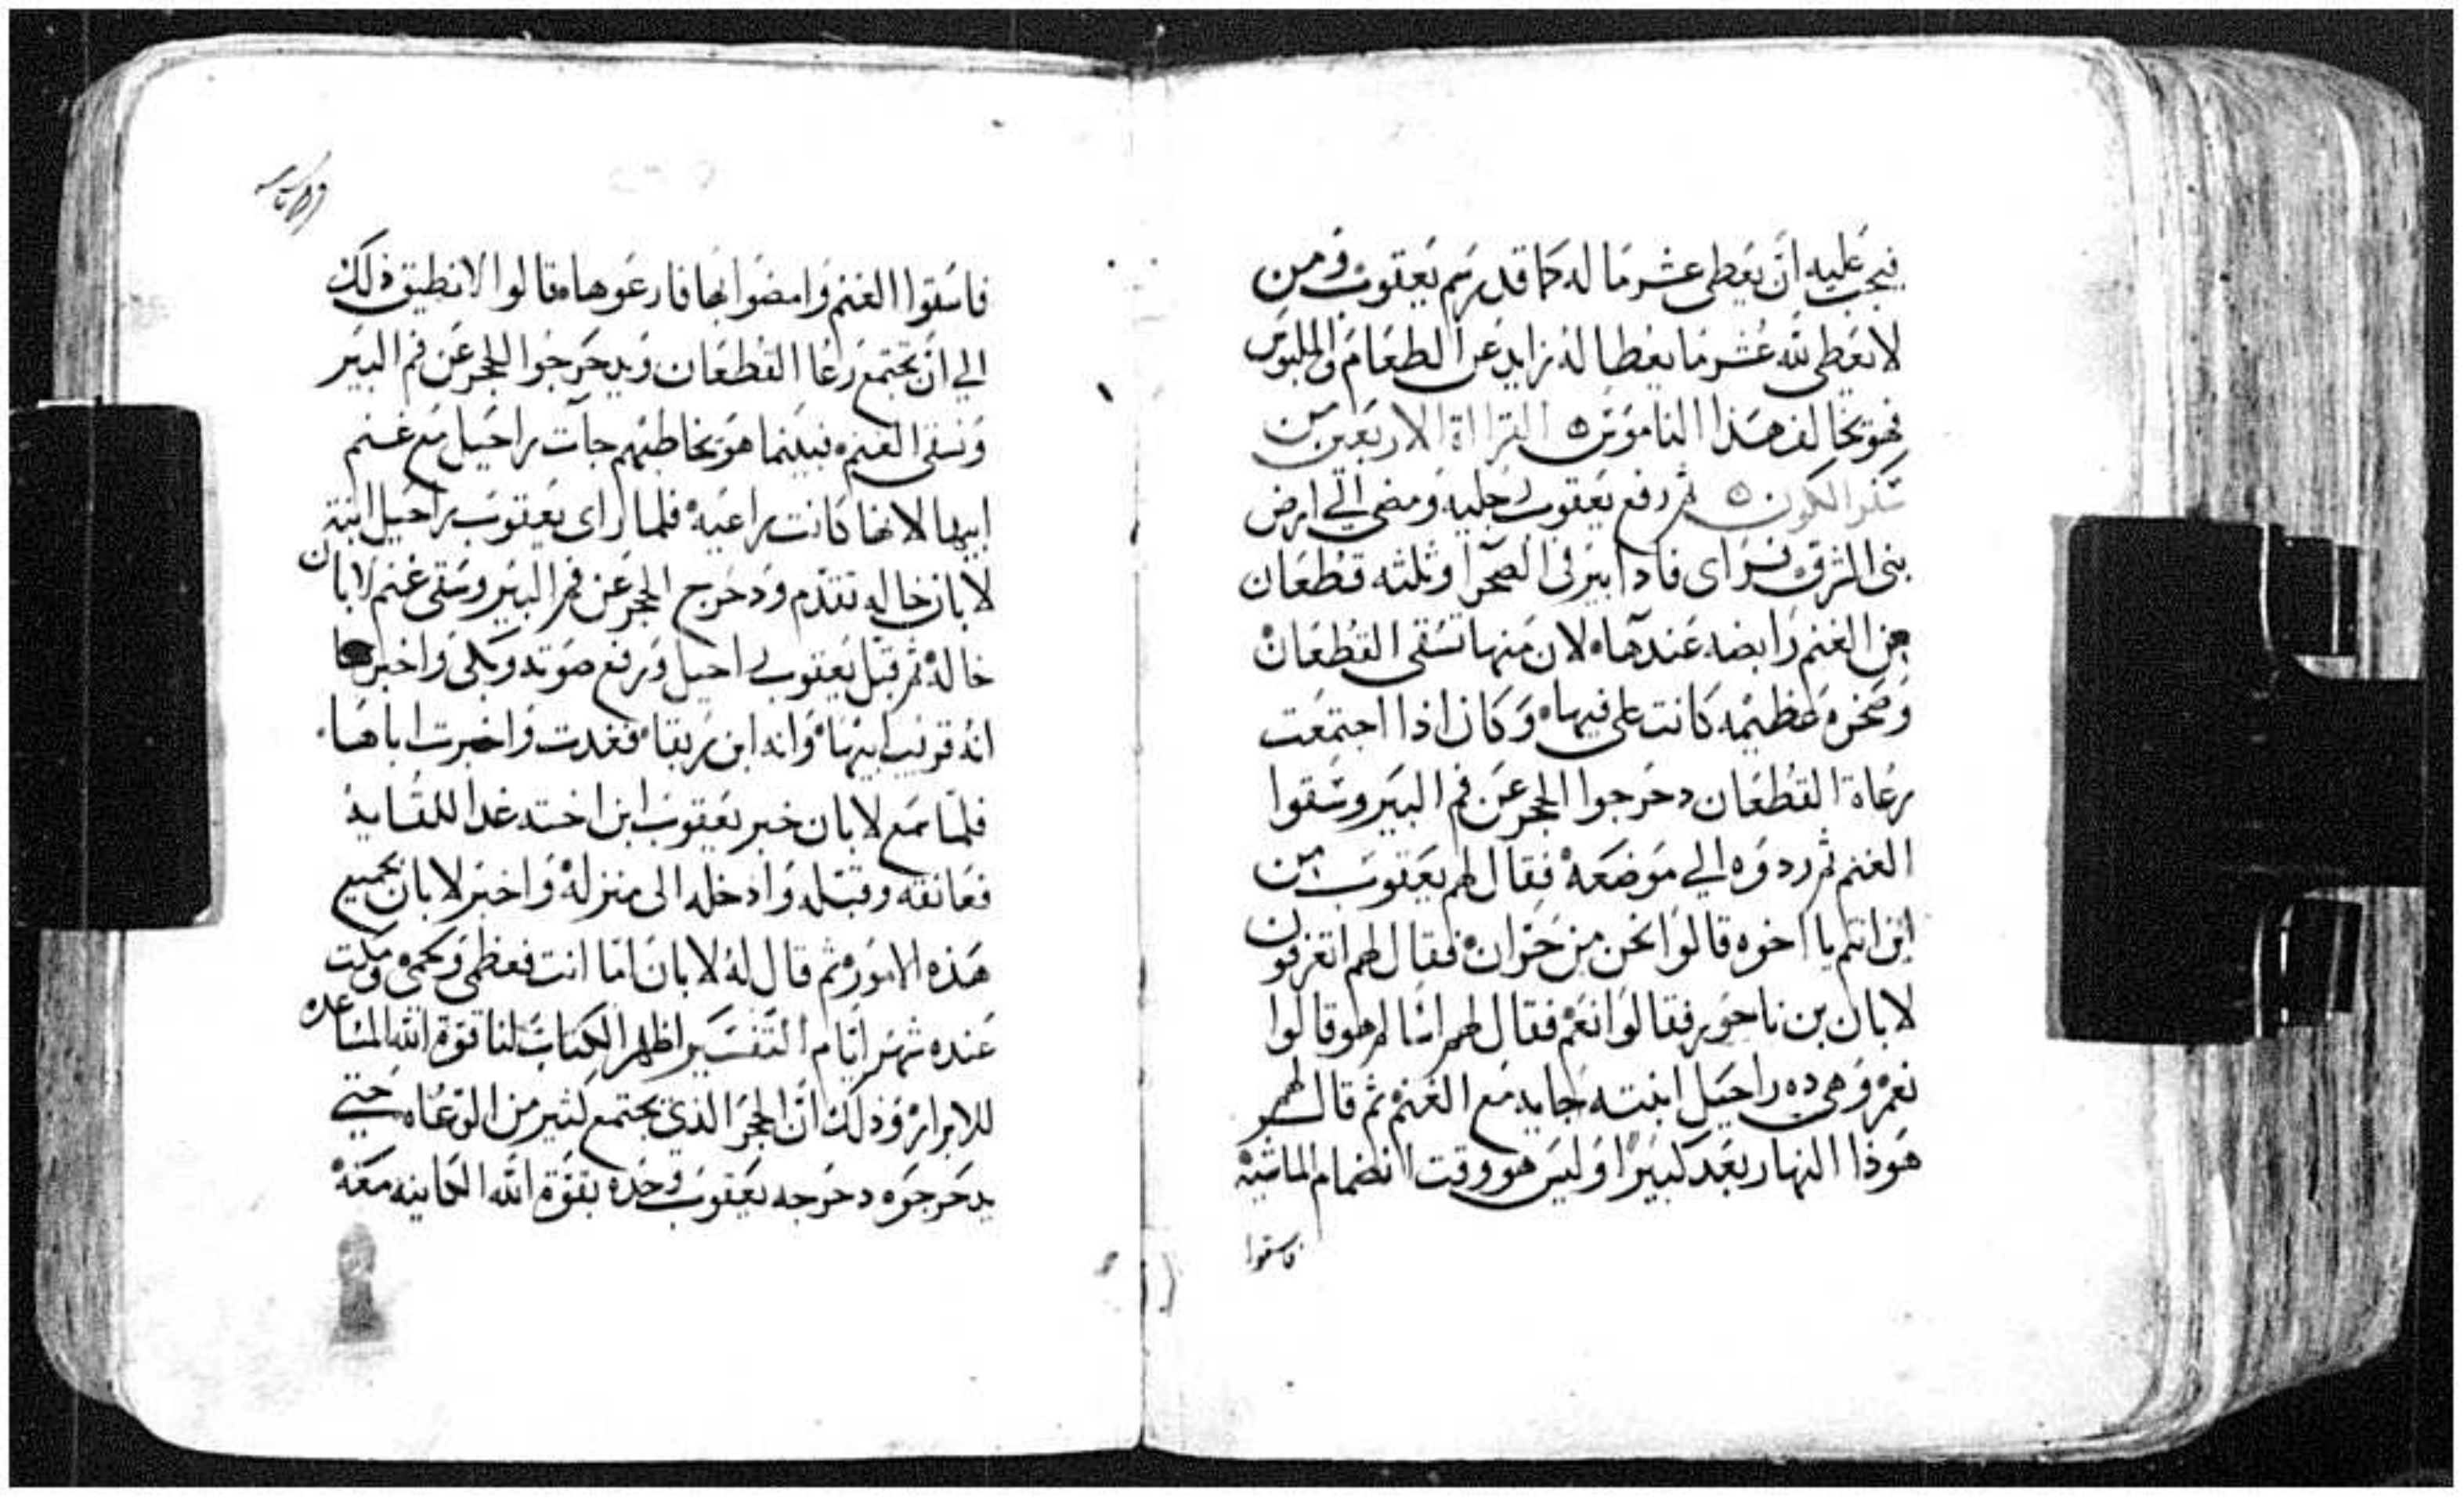 فيجب عليه ان يعطي عشر ما له كما قد رسم يعقوب ومن
لا يعطي لله عشر ما يعطا له زايد عن الطعام والملبوس
فهو يخالف هذا الناموس ه القرااة الاربعين من
سفر الكون ه ثم رفع يعقوب رجليه ومضي الي ارض
بني المشرق فراي فاذا بير في الصحرا وثلثه قطعان
من الغنم رابضه عندها ه لان منها تسقي القطعان
وصخره عظيمه كانت علي فيها ه وكان اذا اجتمعت
رعاة القطعان دحرجوا الحجر عن فم البير وسقوا
الغنم ثم ردوه الي موضعه فقال لهم يعقوب من
اين انتم يا اخوه قالوا نحن من حران فقال لهم اتعرفون
لابان بن ناحور فقالوا نعم فقال لهم اسالم هو قالوا
نعم وهي ده راحيل ابنته جايه مع الغنم ثم قال لهم
هوذا النهار بعد كبيرا وليس هو وقت انضمام الماشيه
فاسقوا
فاسقوا الغنم وامضوا بها فارعوها ه قالوا لا نطيق ذلك
الي ان تجتمع رعا القطعان ويدحرجوا الحجر عن فم البير
ونسقي الغنم ه فبينما هو يخاطبهم جات راحيل مع غنم
ابيها لانها كانت راعيه فلما راي يعقوب راحيل ابنة
لابان خاله تقدم ودحرج الحجر عن فم البير وسقي غنم لابان
خاله ثم قبل يعقوب راحيل ورفع صوته وبكي واخبرها
انه قريب ابيها وانه ابن ربقا فغدت واخبرت اباها
فلما سمع لابان خبر يعقوب ابن اخته غدا للقايه
فعانقه وقبله وادخله الي منزله واخبر لابان بجميع
هذه الامور ثم قال له لابان اما انت فعظمي ولحمي ومكت
عنده شهر ايام التفسير اظهر الكتاب لنا قوة الله المساعده
للابرار وذلك ان الحجر الذي يجتمع كثير من الرعاه حتي
يدحرجوه دحرجه يعقوب وحده بقوة الله الكاينه معه